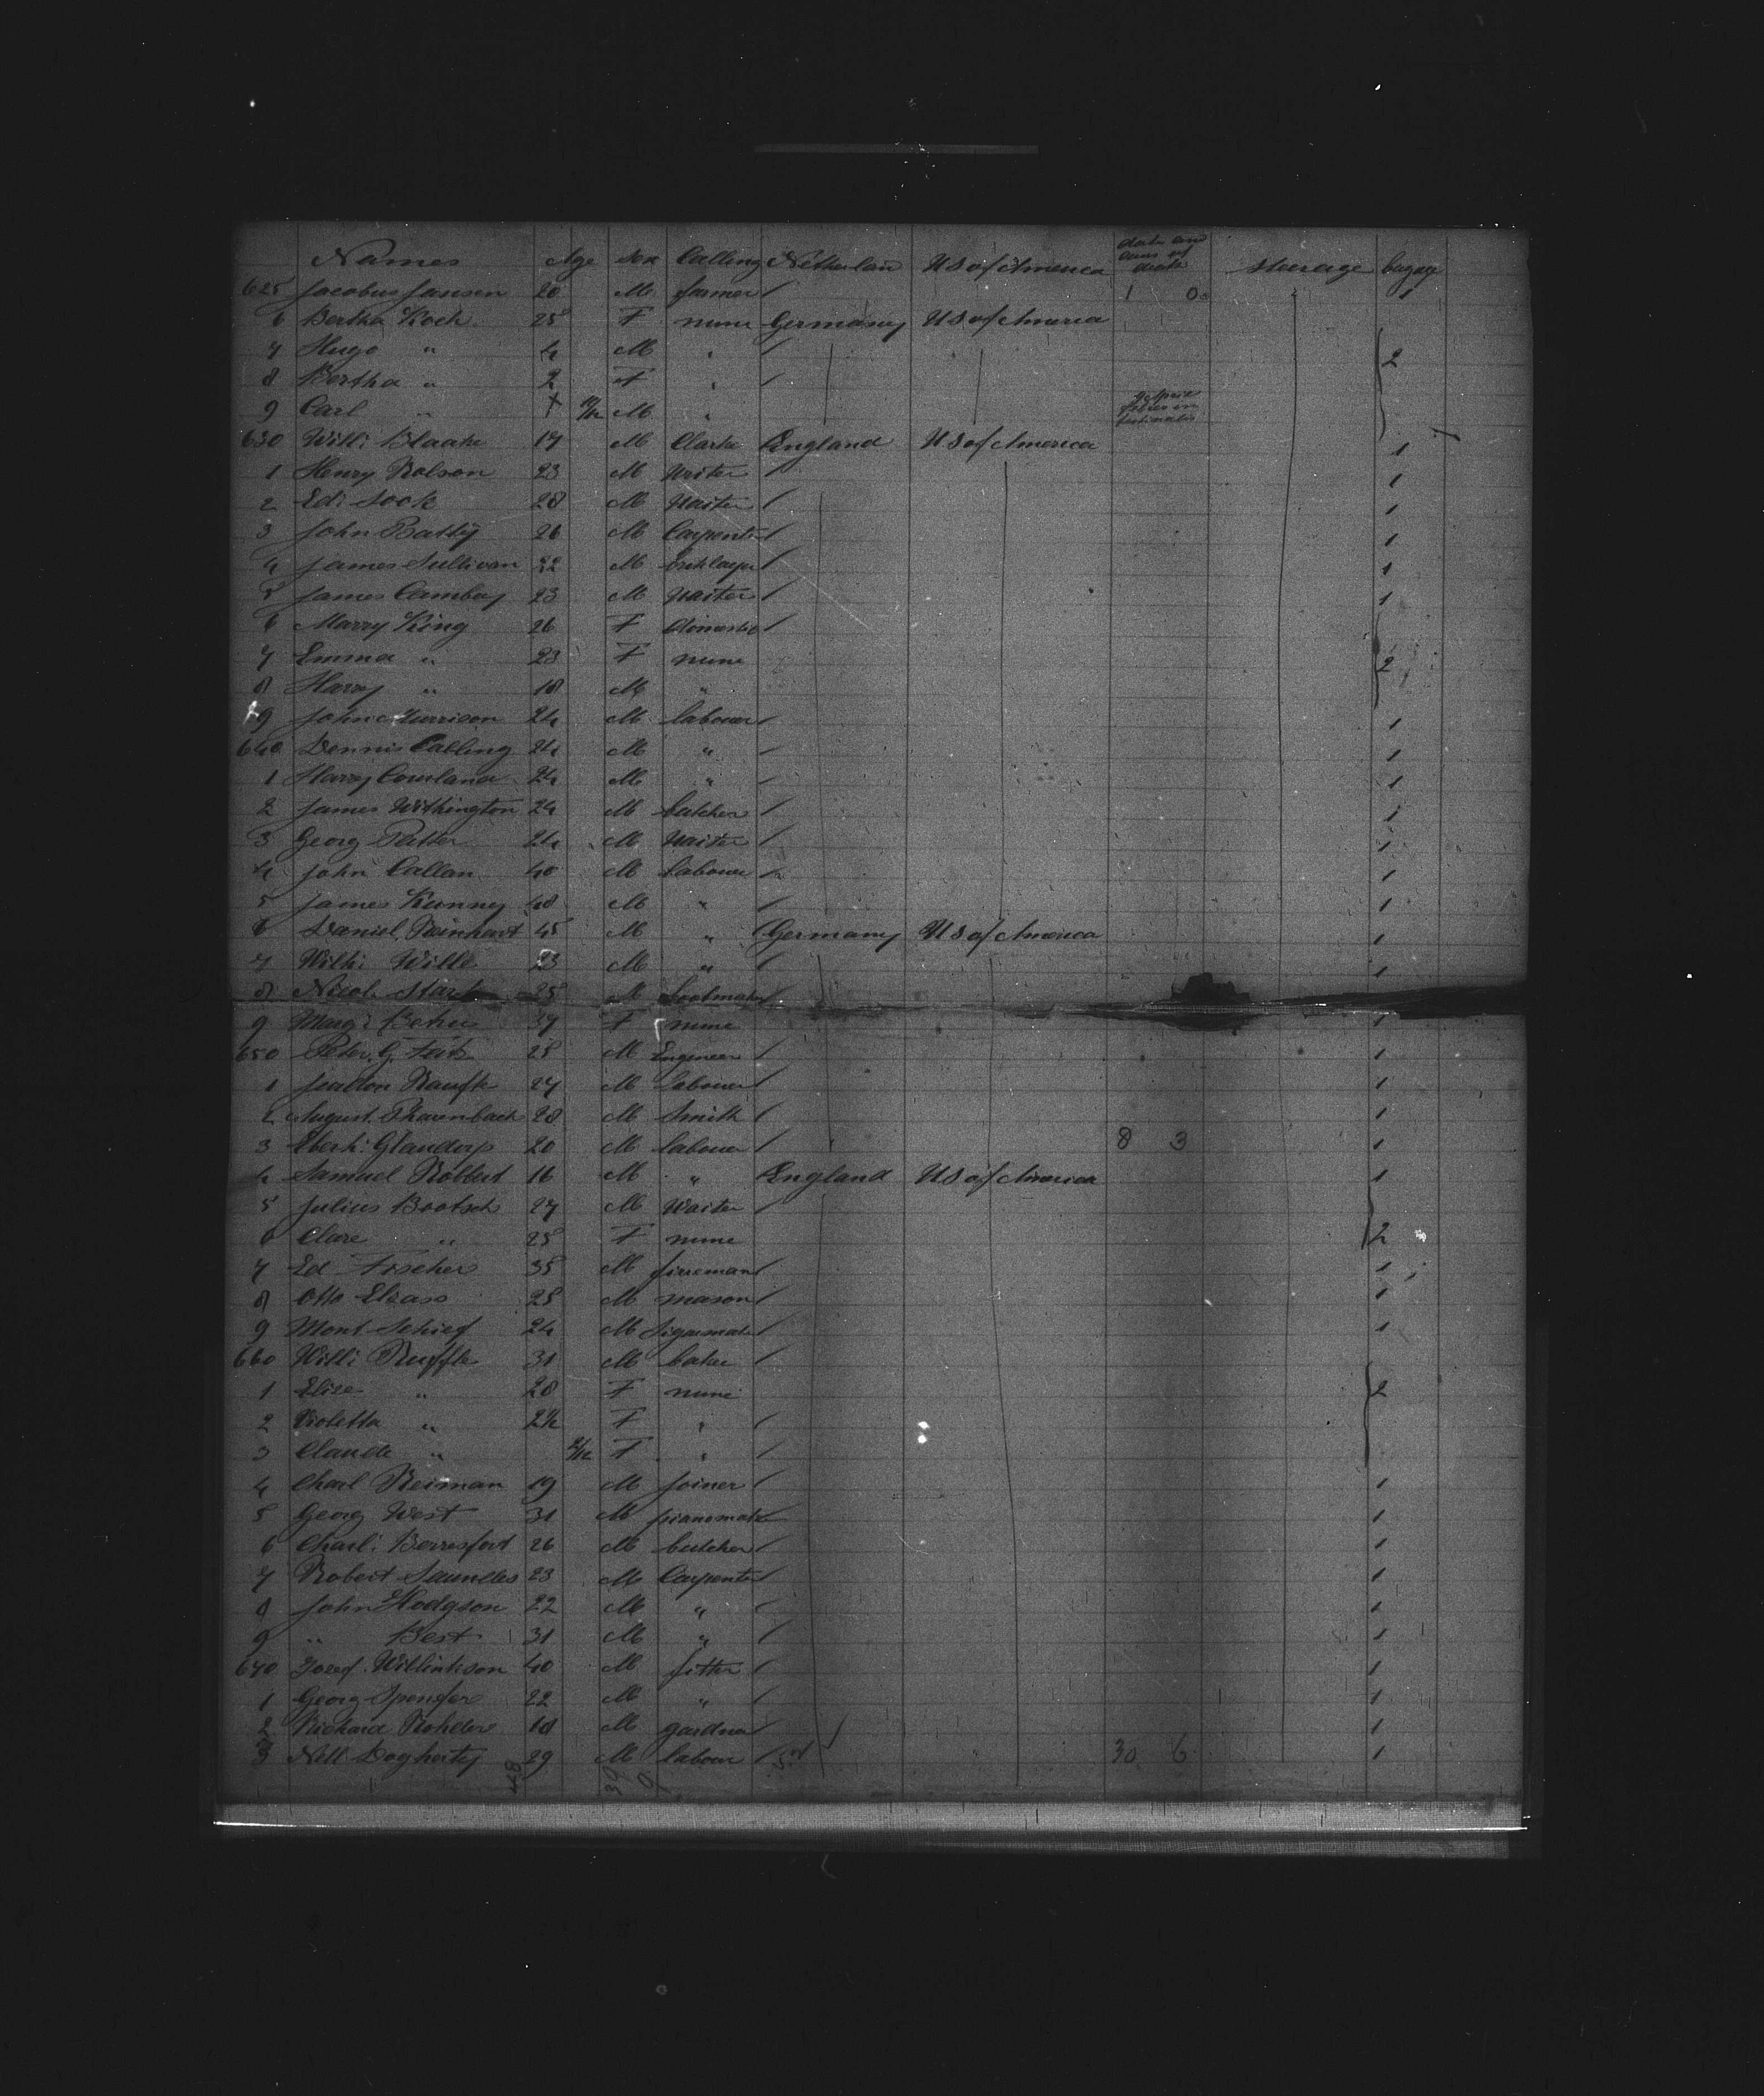 Names Age Sex Calling Netherlan US of America date and caus of death steerage bagage
625 Jacobus Jansen 20 M farmer / 1 0 1
6 Bertha Koch 25 F nune Germany US of America
7 Hugo " 4 M " / 2
8 Bertha " 2 F " /
9 Carl " † M "
630 Willi Blaake 17 M Clarke England US of America 1
1 Henry Rolson 23 M Writer / 1
2 Ed: Sook 28 M Waiter / 1
3 John Batty 26 M Carpenter / 1
4 James Sullivan 22 M bricklayer / 1
5 James Cambey 23 M Waiter / 1
6 Marry King 26 F domestic /
7 Emma " 23 F nune 2
8 Harry " 18 M "
9 John Murrison 24 M labouer / 1
640 Dennis Calling 24 M " / 1
1 Harry Courland 24 M " / 1
2 James Withington 24 M butcher / 1
3 Georg Patter 24 M Waiter / 1
4 John Callan 40 M labouer / 1
5 James Kunney 48 M " / 1
6 Daniel Reinhart 45 M " Germany US of America 1
7 Wilh: Wille 23 M " / 1
8 Nicol: Stark 25 M bootmaker /
9 Marg: 37 F nune 1
650 Peter G. 25 M Engineer / 1
1 27 M labouer / 1
2 August Tharenbach 28 M Smith / 1
3 Eberh: Glandorp 20 M labouer / 8 3 1
4 Samuel Robbert 16 M " England US of America 1
5 Julius Bootsch 27 M Waiter /
6 Clare " 25 F nune 2
7 Ed Fischer 35 M fireman / 1
8 Otto Elsass 25 M mason / 1
9 Mont Schief 24 M sigarmaker / 1
660 Willi Ruffle 31 M baker /
1 Elise " 28 F nune 2
2 Violetta " 2½ F " /
3 Claude " F " /
4 Charl Reiman 19 M joiner / 1
5 Georg West 31 M pianomaker / 1
6 Charl: Berresfort 26 M butcher / 1
7 Robert Saundles 23 M Carpenter / 1
8 John Hodgson 22 M " / 1
9 " Best 31 M " / 1
670 Josef Willinkson 40 M fitter / 1
1 Georg Spenser 22 M " / 1
2 Richard Rohder 18 M gardner / 1
3 Nell Dogherty 29 M labouer / 30 6 1
48 39 9